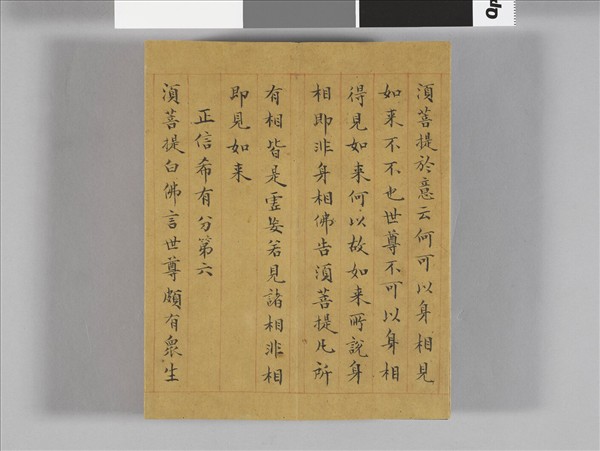 湏菩提於意云何可以身相見
如来不不也世尊不可以身相
得見如来何以故如来所說身
相即非身相佛告湏菩提凡所
有相皆是虚妄若見諸相非相
即見如来
正信希有分第六
湏菩提白佛言世尊頗有衆生